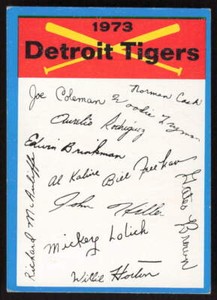 1973
Detroit Tigers
Norman Cash
Joe Coleman
Woodie Fryman
Aurelio Rodriguez
Edwin Brinkman
Al Kaline
Bill Freehan
John Hiller
Mickey Lolich
Willie Horton
Richard McAuliffe
Gates Brown